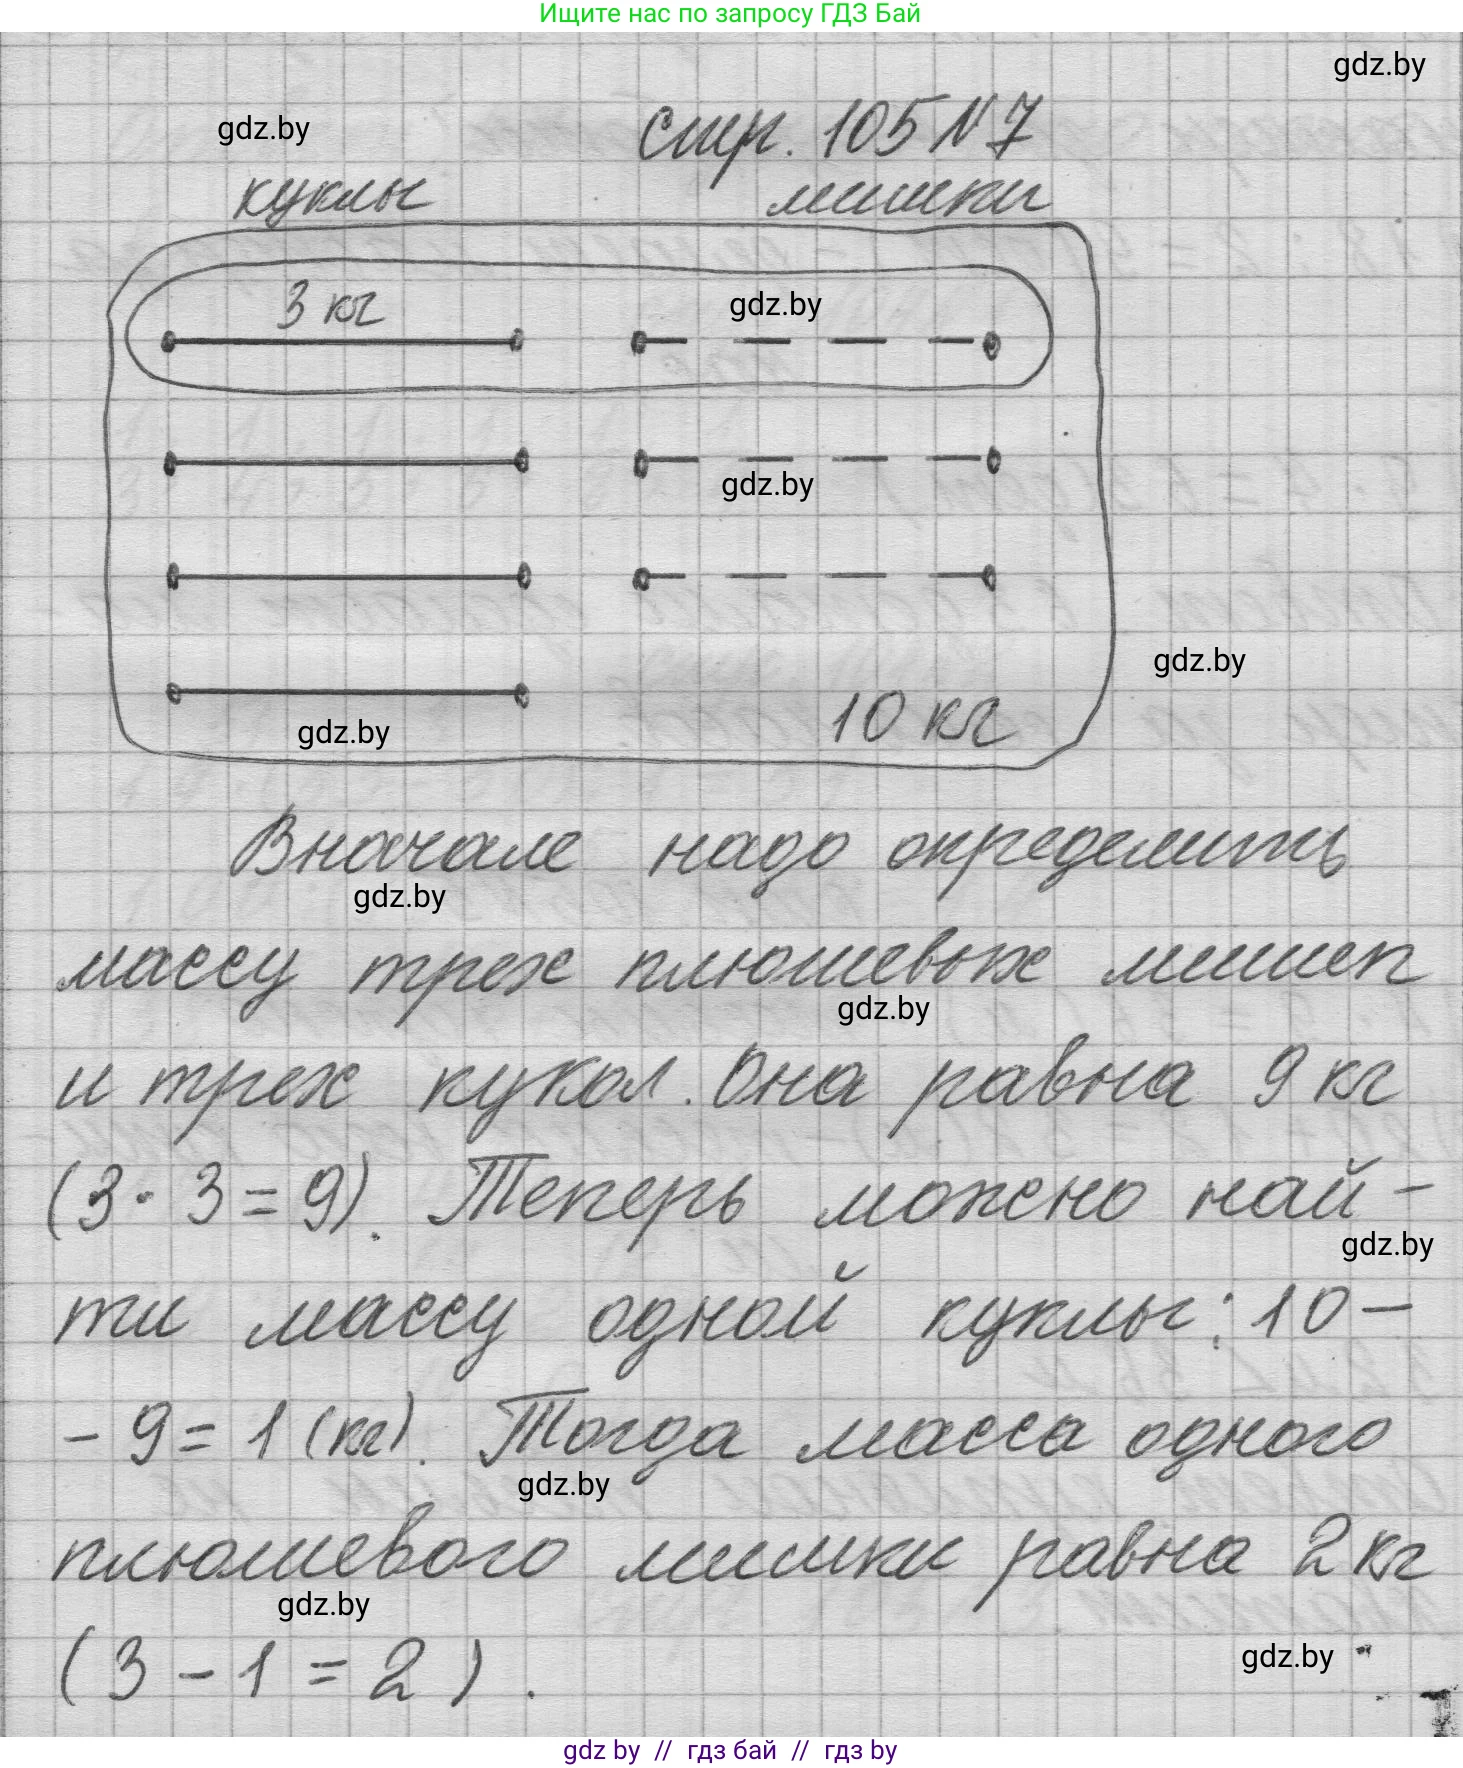 Ищите нас по запросу ГДЗ Бай
gdz.by
gdz.by
стр. 105 N 7
куклы мишки
3 кг
gdz.by
gdz.by
gdz.by
10 кг
gdz.by
Вначале надо определить
gdz.by
массу трех плюшевых мишек
gdz.by
и трех кукол. Она равна 9 кг
(3 · 3 = 9). Теперь можно най-
gdz.by
ти массу одной куклы: 10 -
- 9 = 1 (кг). Тогда масса одного
gdz.by
плюшевого мишки равна 2 кг
gdz.by
(3 - 1 = 2).
gdz.by
gdz by // гдз бай // гдз by